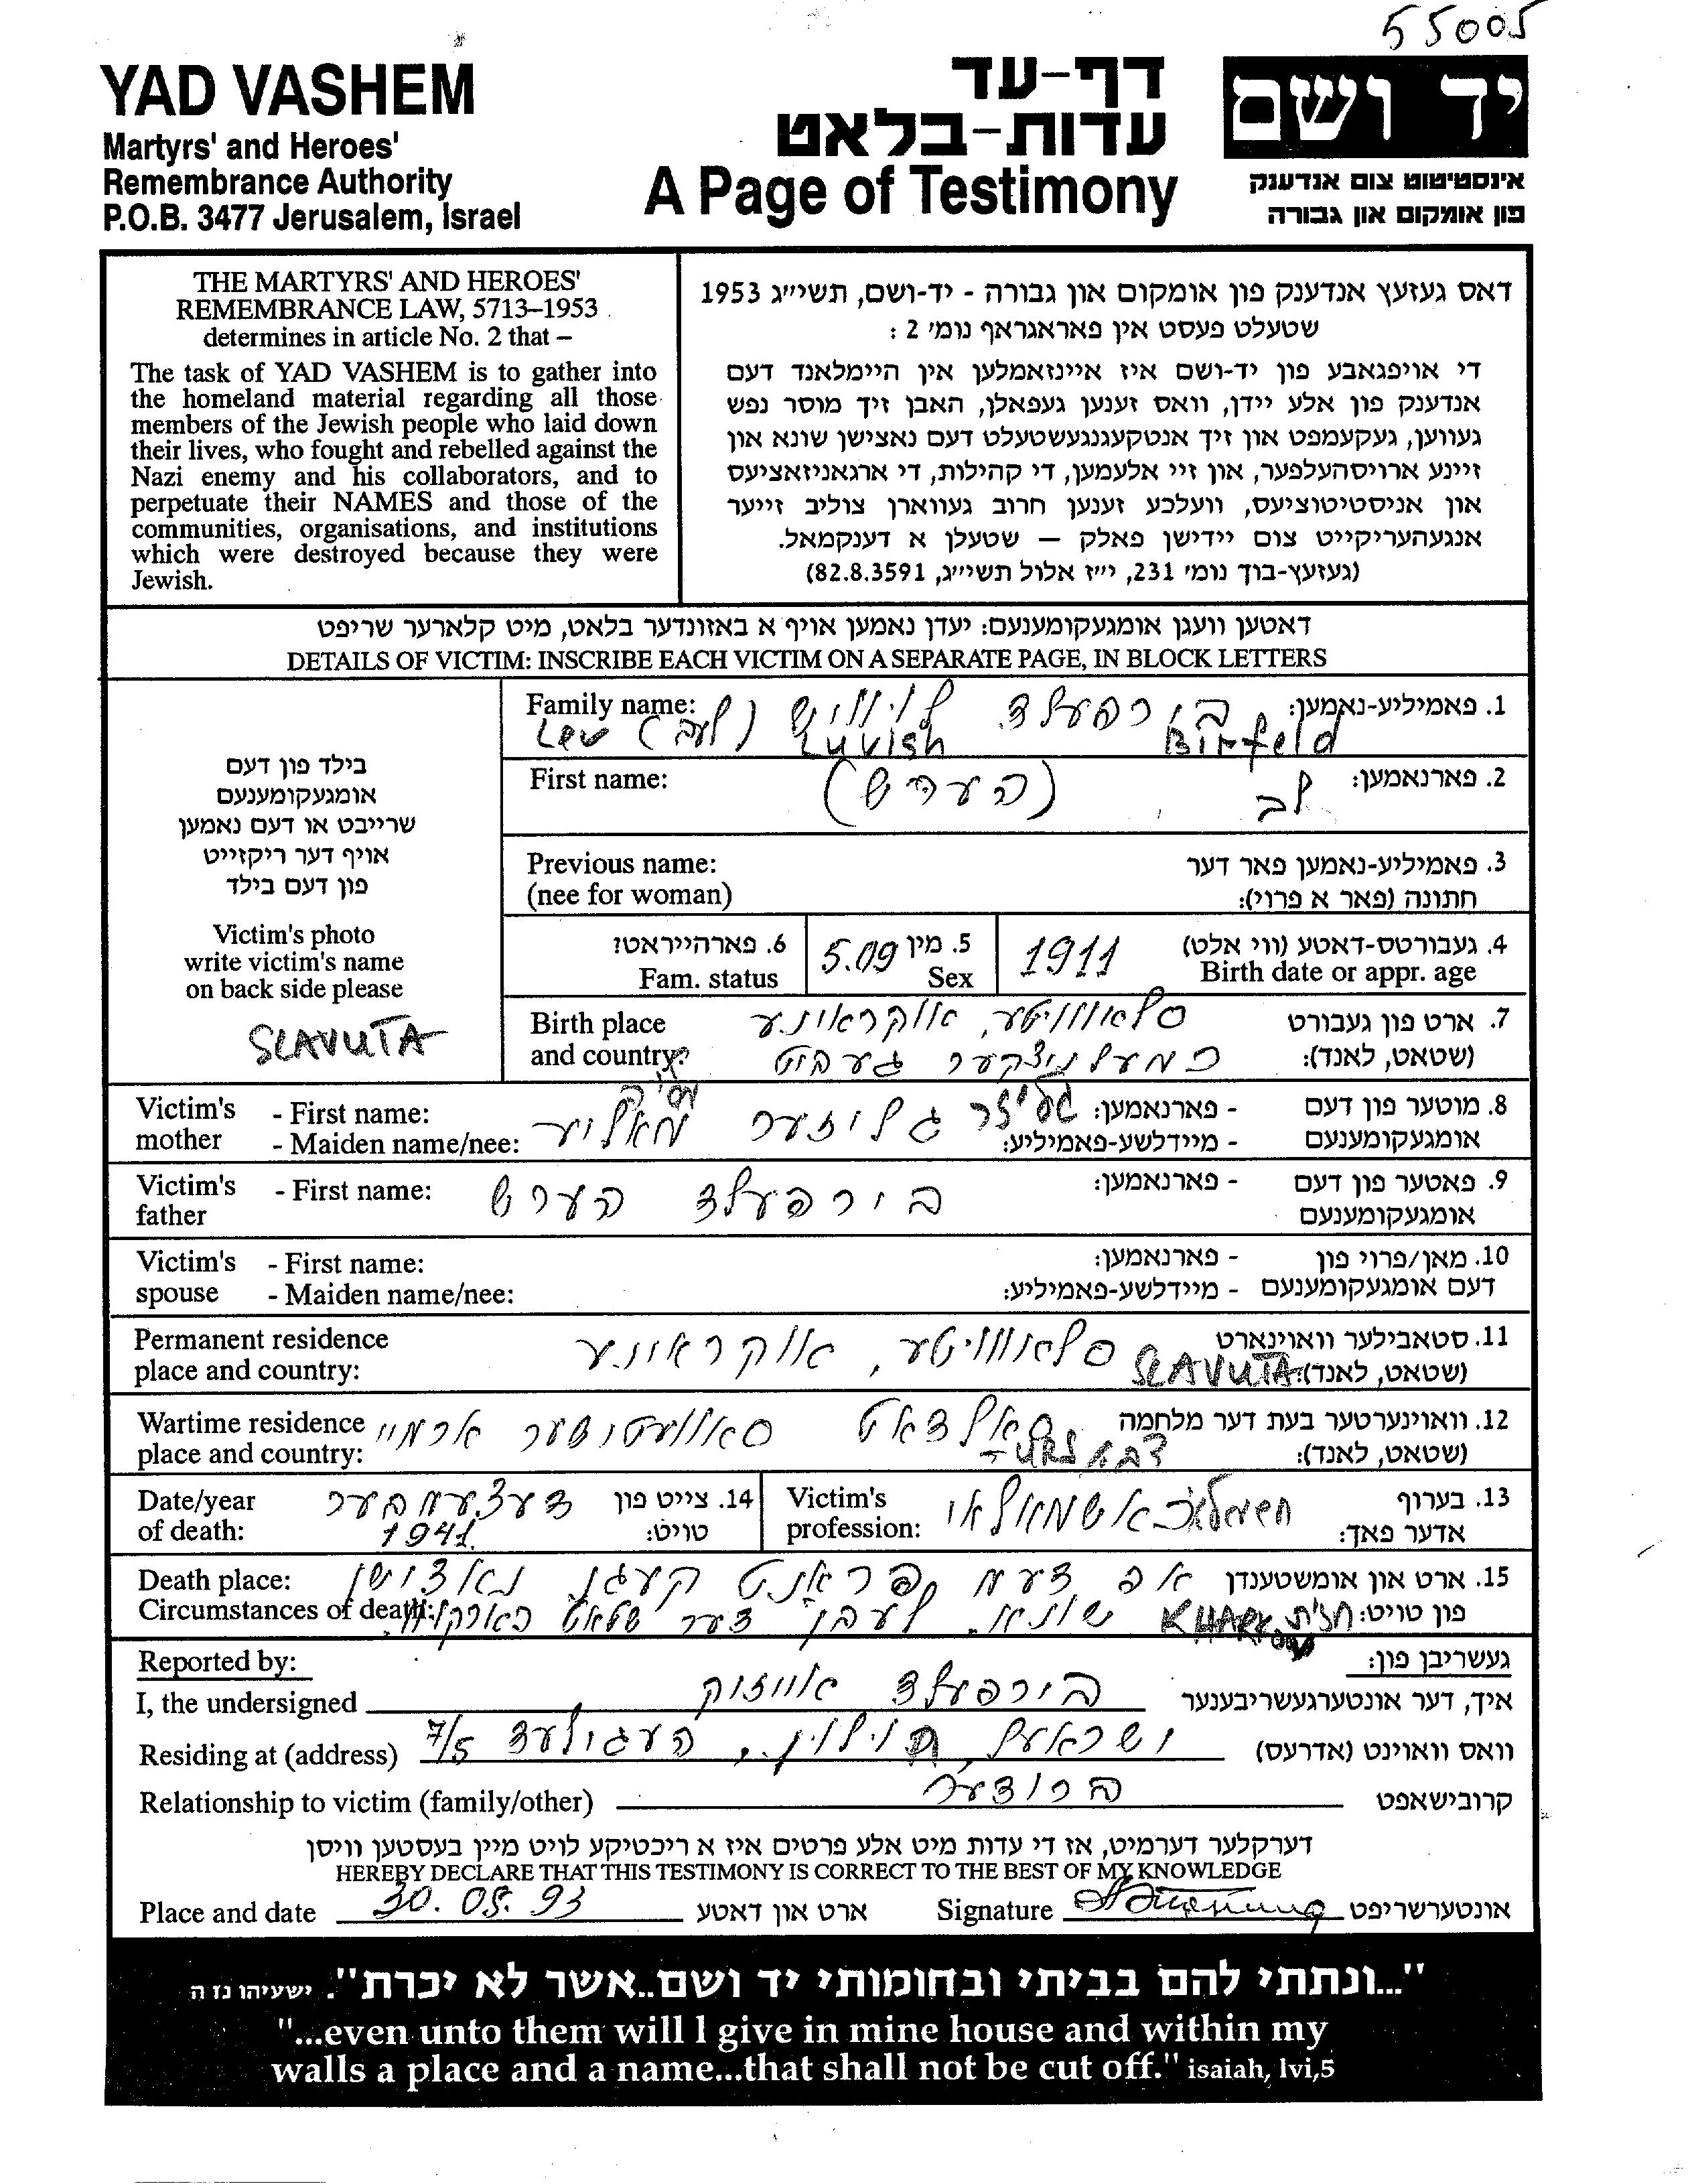 55005
YAD VASHEM
Martyrs' and Heroes'
Remembrance Authority
P.O.B. 3477 Jerusalem, Israel
דף-עד
עדות-בלאט
A Page of Testimony
יד ושם
אינסטיטוט צום אנדענק
פון אומקום און גבורה
THE MARTYRS' AND HEROES'
REMEMBRANCE LAW, 5713–1953
determines in article No. 2 that –
The task of YAD VASHEM is to gather into
the homeland material regarding all those
members of the Jewish people who laid down
their lives, who fought and rebelled against the
Nazi enemy and his collaborators, and to
perpetuate their NAMES and those of the
communities, organisations, and institutions
which were destroyed because they were
Jewish.
דאס געזעץ אנדענק פון אומקום און גבורה - יד-ושם, תשי״ג 1953
שטעלט פעסט אין פאראגראף נומ׳ 2 :
די אויפגאבע פון יד-ושם איז איינזאמלען אין היימלאנד דעם
אנדענק פון אלע יידן, וואס זענען געפאלן, האבן זיך מוסר נפש
געווען, געקעמפט און זיך אנטקעגנגעשטעלט דעם נאצישן שונא און
זיינע ארויסהעלפער, און זיי אלעמען, די קהילות, די ארגאניזאציעס
און אניסטיטוציעס, וועלכע זענען חרוב געווארן צוליב זייער
אנגעהעריקייט צום יידישן פאלק — שטעלן א דענקמאל.
(געזעץ-בוך נומ׳ 231, י״ז אלול תשי״ג, 82.8.3591)
דאטען וועגן אומגעקומענעם: יעדן נאמען אויף א באזונדער בלאט, מיט קלארער שריפט
DETAILS OF VICTIM: INSCRIBE EACH VICTIM ON A SEPARATE PAGE, IN BLOCK LETTERS
בילד פון דעם
אומגעקומענעם
שרייבט או דעם נאמען
אויף דער ריקזייט
פון דעם בילד
Victim's photo
write victim's name
on back side please
SLAVUTA
Family name: 1. פאמיליע-נאמען: בירפעלד לווויש (לעב)
Lev Luvish Birfeld
First name: 2. פארנאמען: לב (הערש)
Previous name: 3. פאמיליע-נאמען פאר דער
(nee for woman) חתונה (פאר א פרוי):
6. פארהייראט? 5. מין 5.09 4. געבורטס-דאטע (ווי אלט) 1911
Fam. status Sex Birth date or appr. age
Birth place 7. ארט פון געבורט סלאוויטע, אוקראינע
and country: (שטאט, לאנד): כמעלניצקער געביט
Victim's - First name: 8. מוטער פון דעם - פארנאמען:
mother - Maiden name/nee: אומגעקומענעם - מיידלשע-פאמיליע: גלוזער
Victim's - First name: 9. פאטער פון דעם - פארנאמען: בירפעלד הערש
father אומגעקומענעם
Victim's - First name: 10. מאן/פרוי פון - פארנאמען:
spouse - Maiden name/nee: דעם אומגעקומענעם - מיידלשע-פאמיליע:
Permanent residence 11. סטאבילער וואוינארט סלאוויטע, אוקראינע
place and country: (שטאט, לאנד): SLAVUTA
Wartime residence 12. וואוינערטער בעת דער מלחמה סאלדאט סאוועטישער ארמיי
place and country: (שטאט, לאנד):
Date/year 14. צייט פון דעצעמבער Victim's 13. בערוף
of death: טויט: 1941. profession: אדער פאך:
Death place: 15. ארט און אומשטענדן אפ דעם פראנט קעגן נאצישן
Circumstances of death: פון טויט: KHARKOV שונא, לעבן דער שטאט כארקוו.
Reported by: געשריבן פון:
I, the undersigned איך, דער אונטערגעשריבענער בירפעלד אייזיק
Residing at (address) וואס וואוינט (אדרעס) ישראעל, חולון, 7/5
Relationship to victim (family/other) קרובישאפט ברודער
דערקלער דערמיט, אז די עדות מיט אלע פרטים איז א ריכטיקע לויט מיין בעסטען וויסן
HEREBY DECLARE THAT THIS TESTIMONY IS CORRECT TO THE BEST OF MY KNOWLEDGE
Place and date 30. 08. 93 ארט און דאטע Signature אונטערשריפט
"...ונתתי להם בביתי ובחומותי יד ושם..אשר לא יכרת". ישעיהו נז ה
"...even unto them will I give in mine house and within my
walls a place and a name...that shall not be cut off." isaiah, lvi,5